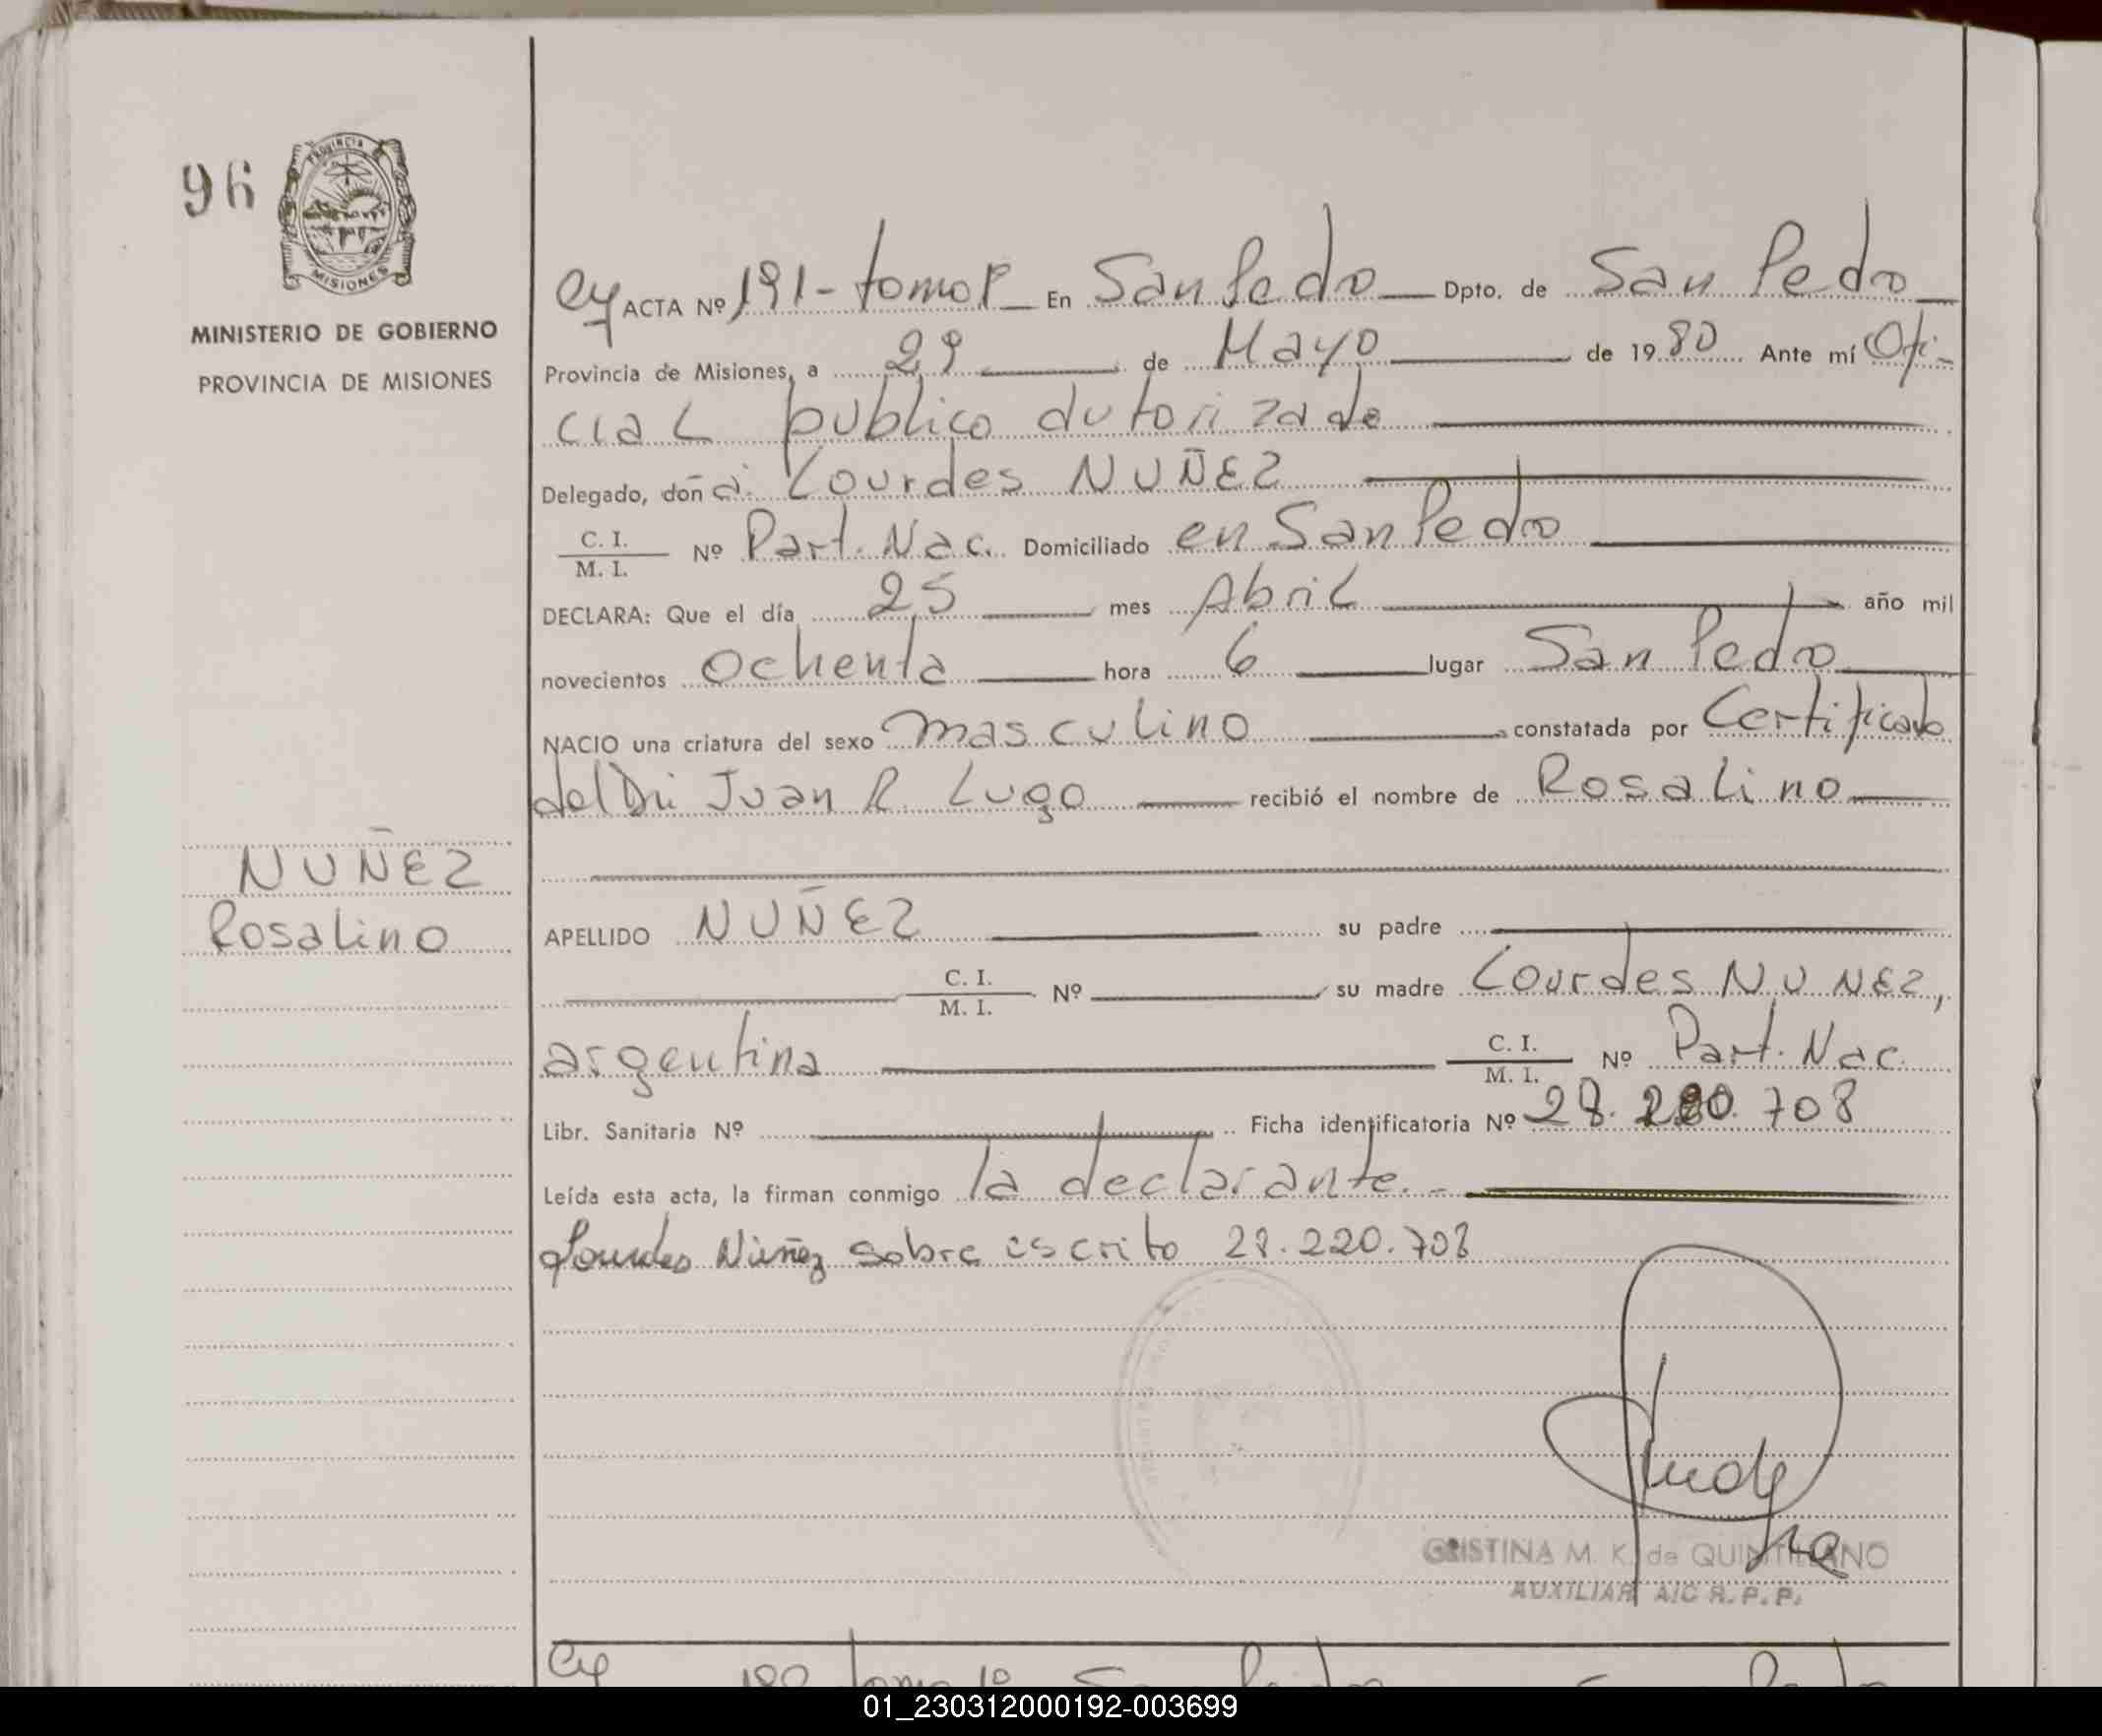 96
PROVINCIA
MISIONES
MINISTERIO DE GOBIERNO
PROVINCIA DE MISIONES
ACTA Nº 191- tomo 1º En San Pedro Dpto. de San Pedro
Provincia de Misiones, a 29 de Mayo de 1980 Ante mí Ofi-
cial publico autorizado
Delegado, doña Lourdes NUÑEZ
C. I. / M. I. Nº Part. Nac. Domiciliado en San Pedro
DECLARA: Que el día 25 mes Abril año mil
novecientos ochenta hora 6 lugar San Pedro
NACIO una criatura del sexo masculino constatada por Certificado
del Dr. Juan R. Lugo recibió el nombre de Rosalino
NUÑEZ
Rosalino
APELLIDO NUÑEZ su padre
C. I. / M. I. Nº su madre Lourdes NUNEZ,
argentina C. I. / M. I. Nº Part. Nac.
Libr. Sanitaria Nº Ficha identificatoria Nº 28.220.708
Leída esta acta, la firman conmigo la declarante.-
Lourdes Núñez sobre escrito 28.220.708
CRISTINA M. K. de QUINTILLANO
AUXILIAR A/C R. P. P.
tomo 1º San Pedro
01_230312000192-003699